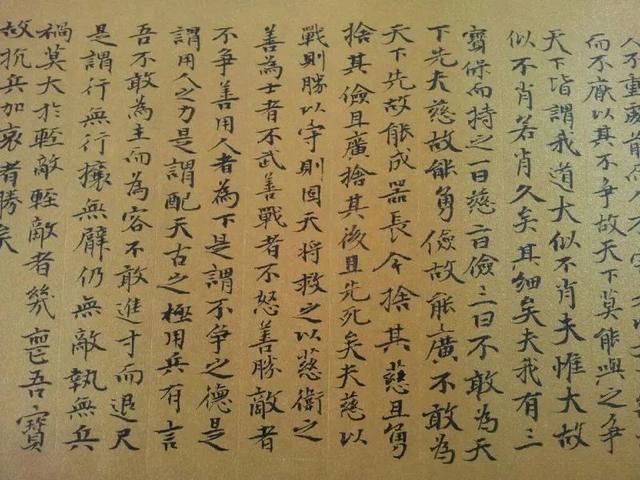 人不重處前而
而不厭以其不爭故天下莫能與之爭
天下皆謂我道大似不肖夫惟大故
似不肖若肖久矣其細矣夫我有三
寶保而持之一曰慈二曰儉三曰不敢為天
下先夫慈故能勇儉故能廣不敢為
天下先故能成器長今捨其慈且勇
捨其儉且廣捨其後且先死矣夫慈以
戰則勝以守則固天將救之以慈衛之
善為士者不武善戰者不怒善勝敵者
不爭善用人者為下是謂不爭之德是
謂用人之力是謂配天古之極用兵有言
吾不敢為主而為客不敢進寸而退尺
是謂行無行攘無臂仍無敵執無兵
禍莫大於輕敵輕敵者幾喪吾寶
故抗兵加哀者勝矣